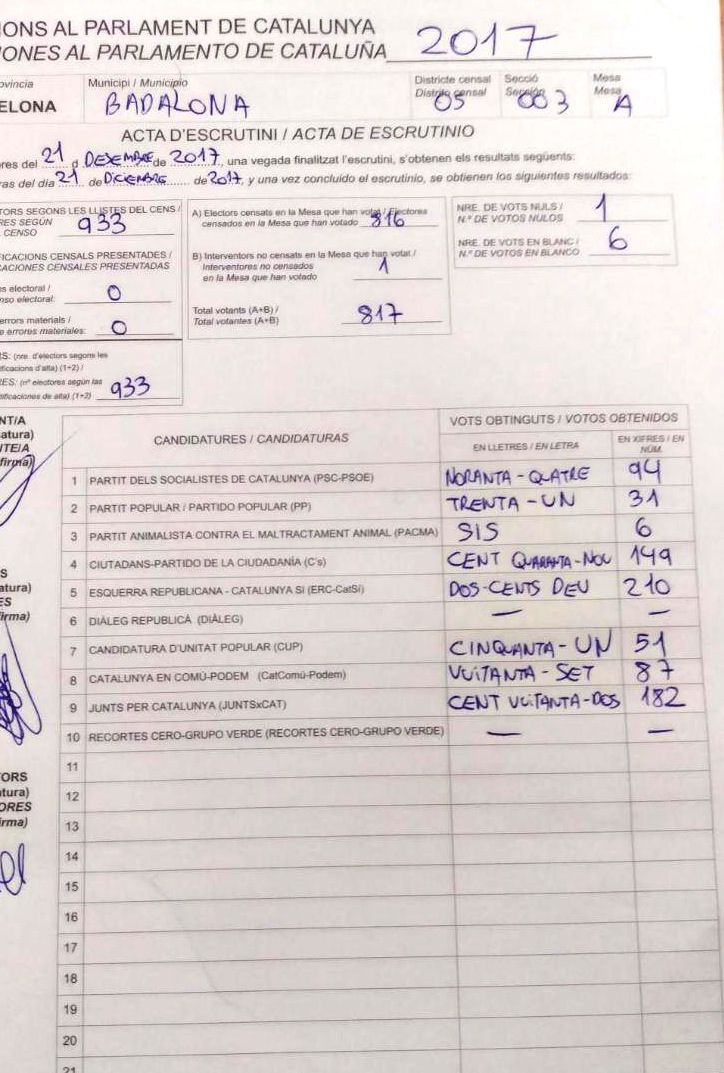 IONS AL PARLAMENT DE CATALUNYA
IONES AL PARLAMENTO DE CATALUÑA 2017
ovíncia Municipi / Municipio Districte censal Secció Mesa
Distrito censal Sección Mesa
ELONA BADALONA 05 003 A
ACTA D'ESCRUTINI / ACTA DE ESCRUTINIO
res del 21 d DESEMBRE de 2017, una vegada finalitzat l'escrutini, s'obtenen els resultats següents:
ras del día 21 de DICIEMBRE de 2017, y una vez concluido el escrutinio, se obtienen los siguientes resultados:
TORS SEGONS LES LLISTES DEL CENS /
RES SEGÚN
CENSO 933
FICACIONS CENSALS PRESENTADES /
CACIONES CENSALES PRESENTADAS
s electoral /
nso electoral: 0
errors materials /
e errores materiales: 0
S: (nre. d'electors segons les
ificacions d'alta) (1+2) /
RES: (nº electores según las
tificaciones de alta) (1+2) 933
A) Electors censats en la Mesa que han votat / Electores
censados en la Mesa que han votado 816
B) Interventors no censats en la Mesa que han votat /
Interventores no censados
en la Mesa que han votado 1
Total votants (A+B) /
Total votantes (A+B) 817
NRE. DE VOTS NULS /
N.º DE VOTOS NULOS 1
NRE. DE VOTS EN BLANC /
N.º DE VOTOS EN BLANCO 6
NT/A
atura)
NTE/A
firma)
S
atura)
ES
irma)
TORS
atura)
ORES
irma)
CANDIDATURES / CANDIDATURAS VOTS OBTINGUTS / VOTOS OBTENIDOS
EN LLETRES / EN LETRA EN XIFRES / EN
NÚM.
1 PARTIT DELS SOCIALISTES DE CATALUNYA (PSC-PSOE) NORANTA-QUATRE 94
2 PARTIT POPULAR / PARTIDO POPULAR (PP) TRENTA-UN 31
3 PARTIT ANIMALISTA CONTRA EL MALTRACTAMENT ANIMAL (PACMA) SIS 6
4 CIUTADANS-PARTIDO DE LA CIUDADANÍA (C's) CENT QUARANTA-NOU 149
5 ESQUERRA REPUBLICANA - CATALUNYA SÍ (ERC-CatSí) DOS-CENTS DEU 210
6 DIÀLEG REPUBLICÀ (DIÀLEG) — —
7 CANDIDATURA D'UNITAT POPULAR (CUP) CINQUANTA-UN 51
8 CATALUNYA EN COMÚ-PODEM (CatComú-Podem) VUITANTA-SET 87
9 JUNTS PER CATALUNYA (JUNTSxCAT) CENT VUITANTA-DOS 182
10 RECORTES CERO-GRUPO VERDE (RECORTES CERO-GRUPO VERDE) — —
11
12
13
14
15
16
17
18
19
20
21